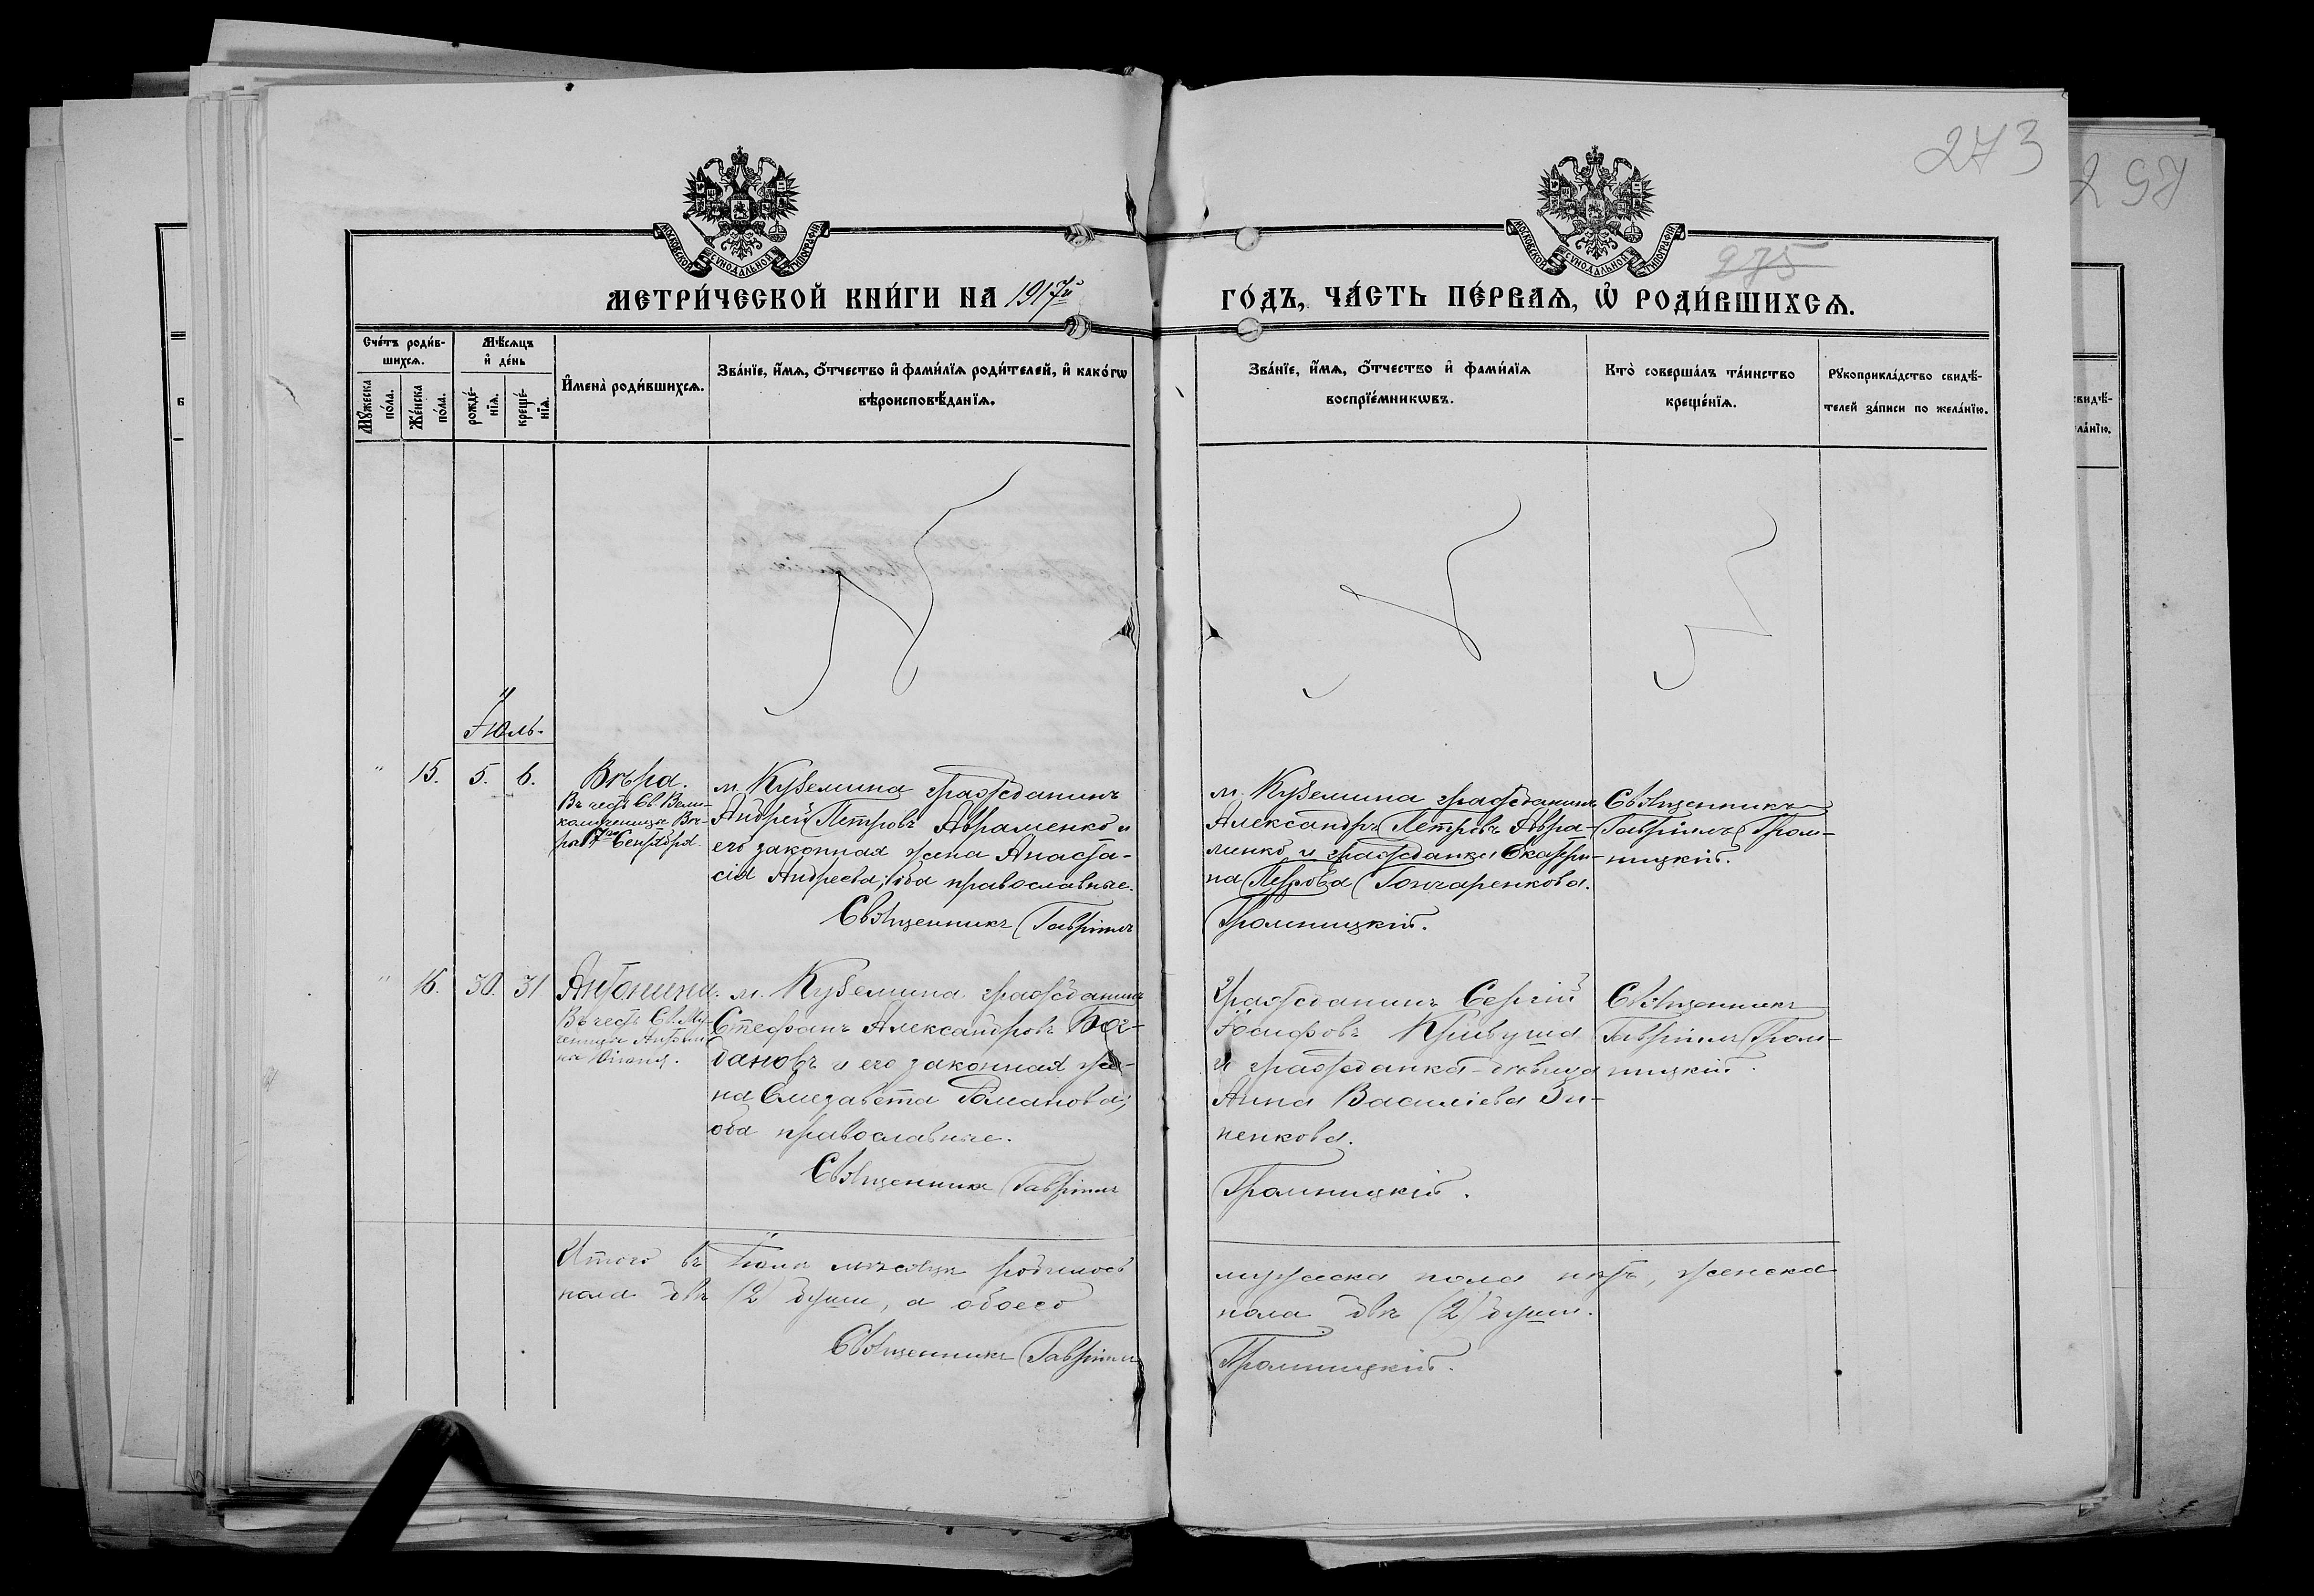 273
297
МОСКОВСКОЙ СѴНОДАЛЬНОЙ ТИПОГРАФІИ
МОСКОВСКОЙ СѴНОДАЛЬНОЙ ТИПОГРАФІИ
275
МЕТРИ́ЧЕСКОЙ КНИ́ГИ НА 1917й
ГО́ДЪ, ЧА́СТЬ ПЕ́РВАѦ, Ѡ҆ РОДИ́ВШИХСѦ.
Сче́тъ роди́в-
шихсѧ.
Мꙋ́жеска
по́ла.
Же́нска
по́ла.
Мѣ́сѧцъ
и҆ де́нь
рожде́-
нїѧ.
креще́-
нїѧ.
И҆мена̀ роди́вшихсѧ.
Зва́нїе, и҆́мѧ, ѻ҆́тчество и҆ фами́лїѧ роди́телей, и҆ како́гѡ
вѣроисповѣ́данїѧ.
Зва́нїе, и҆́мѧ, ѻ҆́тчество и҆ фами́лїѧ
воспрїе́мникѡвъ.
Кто̀ соверша́лъ та́инство
креще́нїѧ.
Рꙋкоприкла́дство свидѣ́-
телей за́писи по жела́нїю.
свидѣ́-
ла́нїю.
Іюль.
" 15. 5. 6.
Вѣра.
Въ честь Св. Вели-
комученицы Вѣ-
ры 17го Сентября.
м. Куземина гражданинъ
Андрей Петровъ Авраменко и
его законная жена Анаста-
сія Андреева; оба православные.
Священникъ Гавріилъ
м. Куземина гражданинъ
Александръ Петровъ Авра-
менко и гражданка Екатери-
на Петрова Гончаренкова.
Громницкій.
Священникъ
Гавріилъ Гром-
ницкій.
" 16. 30. 31
Антонина.
Въ честь Св. Му-
ченицы Антони-
ны Юіоня.
м. Куземина гражданинъ
Стефанъ Александровъ Бог-
дановъ и его законная же-
на Елизавета Романова;
оба православные.
Священникъ Гавріилъ
Гражданинъ Сергій
Іосифовъ Кривуша
и гражданка-дѣвица
Анна Василіева Зи-
ненкова.
Громницкій.
Священникъ
Гавріилъ Гром-
ницкій.
Итого въ Іюлѣ мѣсяцѣ родилось
мужеска пола нѣтъ, женска
пола двѣ (2) души, а обоего
пола двѣ (2) души.
Священникъ Гавріилъ
Громницкій.